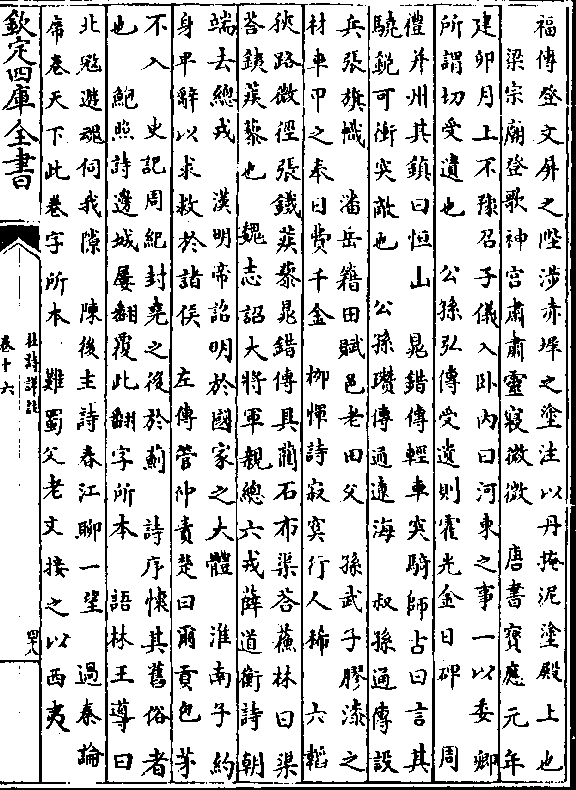 福傳登文屏之陛涉赤墀之塗注以丹掩泥塗殿上也
梁宗廟登歌神宫肅肅靈寢微微 唐書寶應元年
建卯月上不豫召子儀入卧内曰河東之事一以委卿
所謂切受遺也 公孫弘傳受遺則霍光金日磾 周
禮并州其鎮曰恒山 晁錯傳輕車突騎師古曰言其
驍銳可衝突敵也 公孫瓚傳通遼海 叔孫通傳設
兵張旗幟 潘岳籍田賦邑老田父 孫武子膠漆之
材車甲之奉日費千金 柳惲詩寂寞行人稀 六韜
狹路微徑張鐵蒺藜晁錯傳具藺石布渠荅蘇林曰渠
荅鐵蒺藜也 魏志詔大將軍親總六戎薛道衡詩朝
端去總戎 漢明帝詔明於國家之大體 淮南子約
身卑辭以求救於諸侯 左傳管仲責楚曰爾貢包茅
不入 史記周紀封堯之後於薊 詩序懷其舊俗者
也 鮑照詩邊城屢翻覆此翻字所本 語林王導曰
北虜遊魂伺我隙 陳後主詩春江聊一望 過秦論
席卷天下此卷字所本 難蜀父老文接之以西夷
欽定四庫全書
杜詩詳註
卷十六
四八